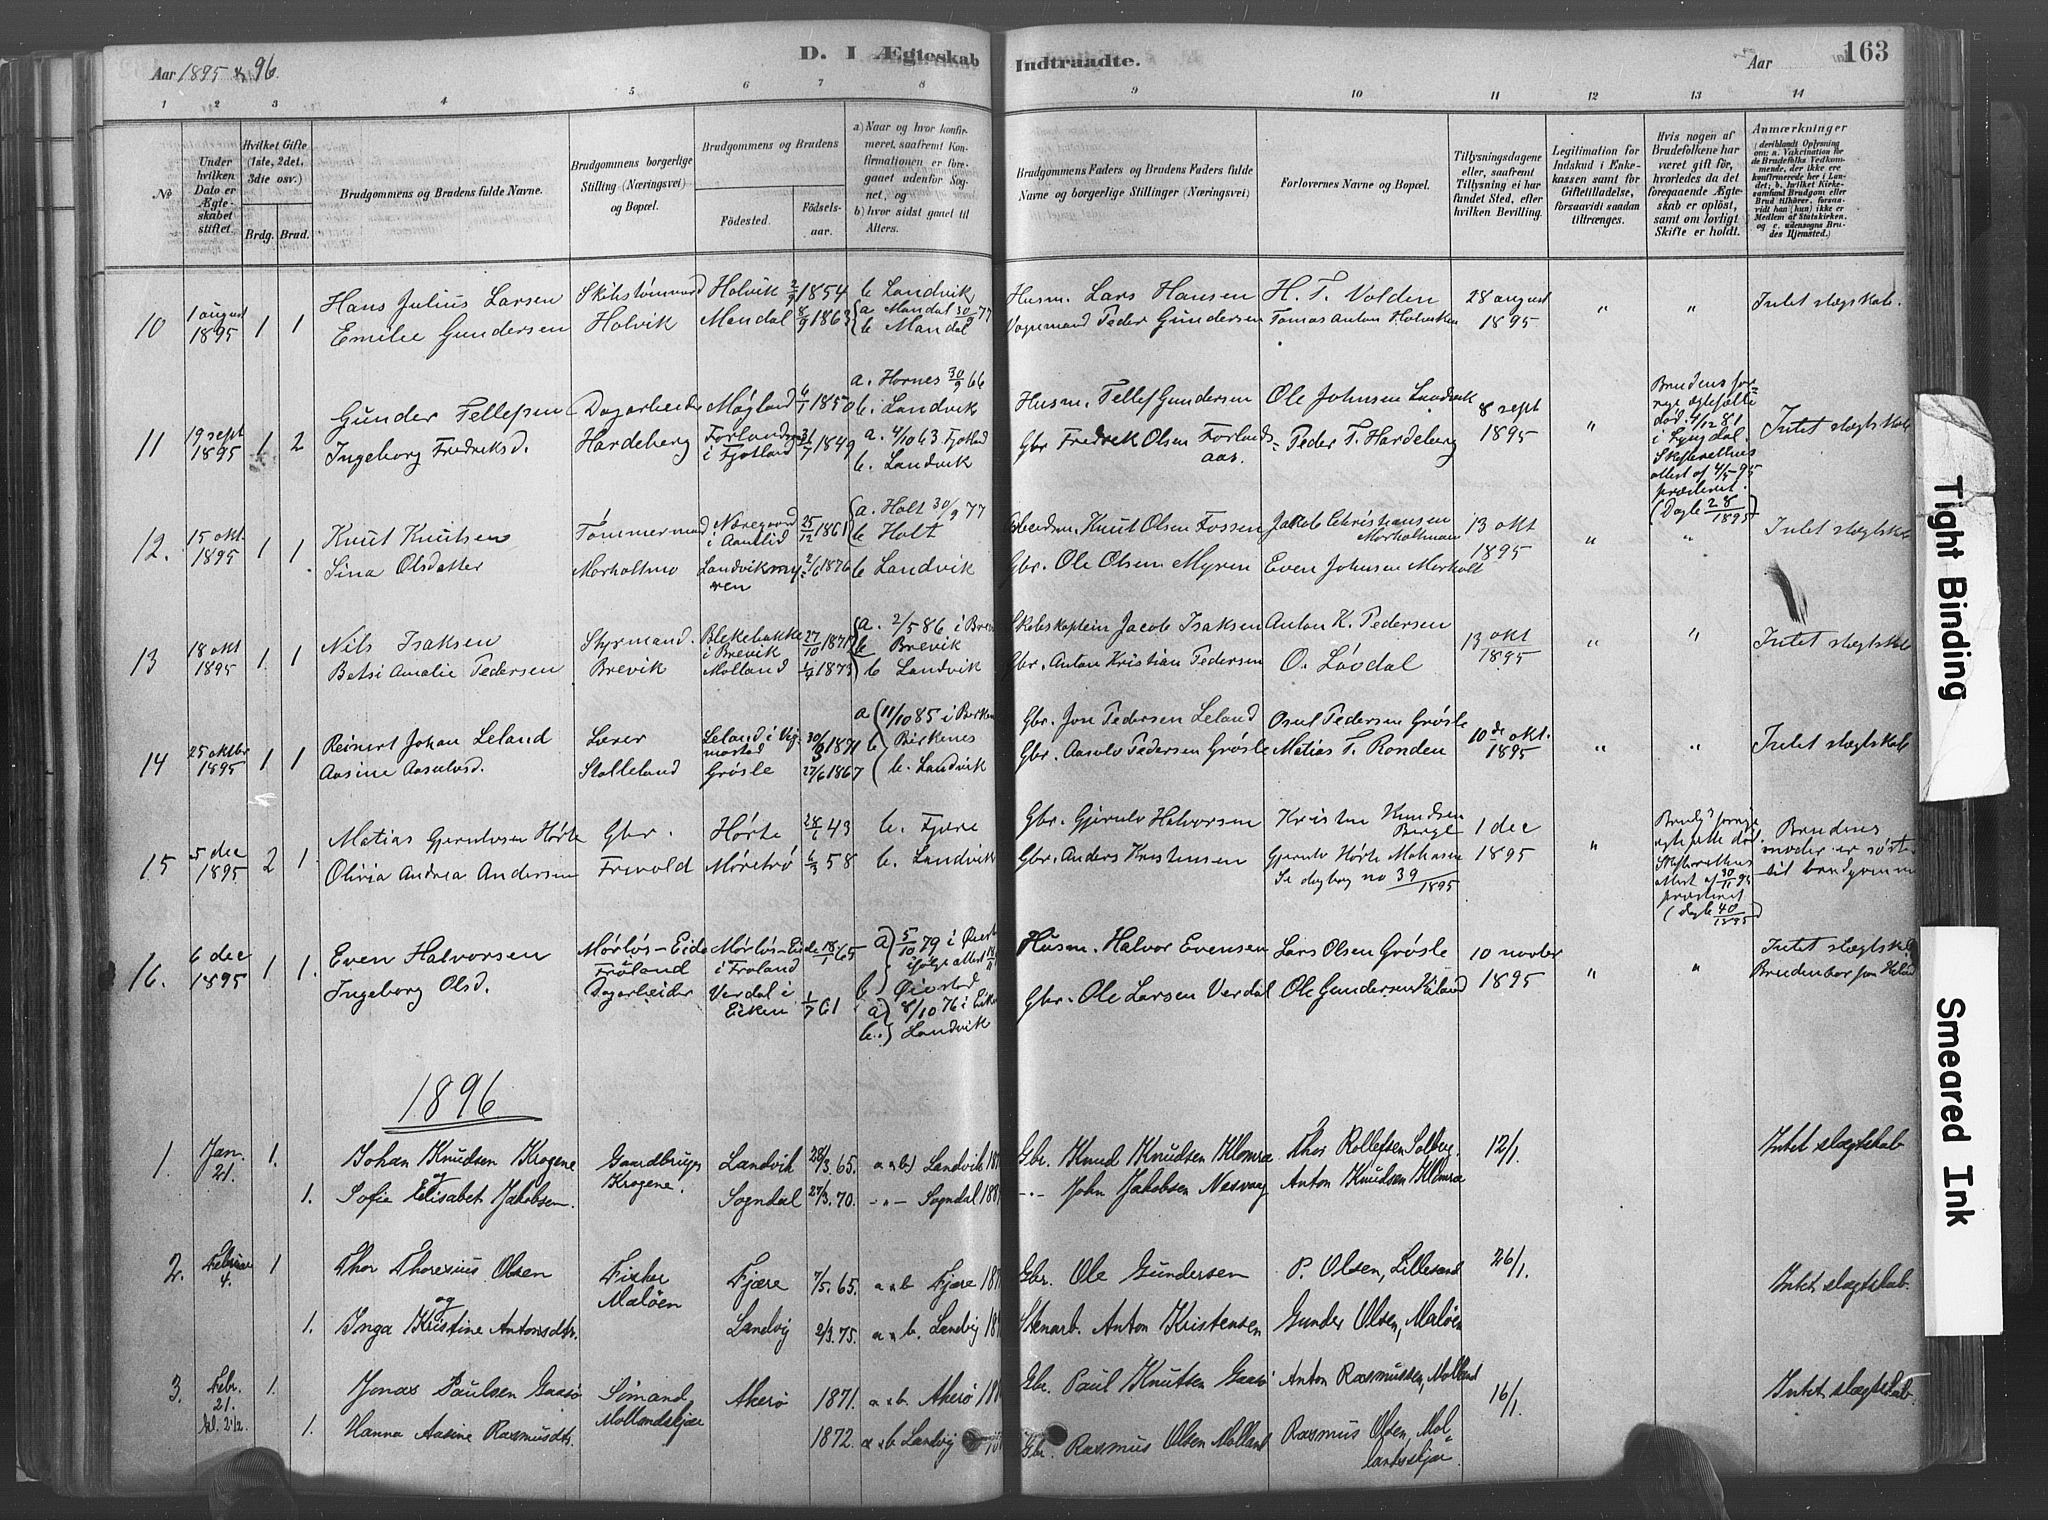 Aar 1895 & 96.
D. I Ægteskab
Indtraadte.
Aar
163
1 2 3 4 5 6 7 8 9 10 11 12 13 14
№
Under hvilken Dato er Ægteskabet stiftet.
Hvilket Gifte (1ste, 2det, 3die osv.)
Brdg. Brud.
Brudgommens og Brudens fulde Navne.
Brudgommens borgerlige Stilling (Næringsvei) og Bopæl.
Brudgommens og Brudens
Fødested.
Fødselsaar.
a) Naar og hvor konfirmeret, saafremt Konfirmationen er foregaaet udenfor Sognet, og
b) hvor sidst gaaet til Alters.
Brudgommens Faders og Brudens Faders fulde Navne og borgerlige Stillinger (Næringsvei)
Forlovernes Navne og Bopæl.
Tillysningsdagene eller, saafremt Tillysning ei har fundet Sted, efter hvilken Bevilling.
Legitimation for Indskud i Enkekassen samt for Giftetilladelse, forsaavidt saadan tiltrænges.
Hvis nogen af Brudefolkene har været gift før, hvorledes da det foregaaende Ægteskab er opløst, samt om lovligt Skifte er holdt.
Anmærkninger (deriblandt Oplysning om: a. Vakcination for de Brudefolks Vedkommende, der ikke ere konfirmerede her i Landet; b. hvilket Kirkesamfund Brudgom eller Brud tilhører, forsaavidt han (hun) ikke er Medlem af Statskirken, og c. udensogns Brudes Hjemsted.)
10 1 august 1895 1 1 Hans Julius Larsen Skibstømmermd Holvik 2/9 1854 b Landvik Husm. Lars Hansen H. T. Volden 28 august 1895 " " Intet slægtskab.
Emilie Gundersen Holvik Mandal 8/9 1863 a Mandal 30/9 77 b Mandal Vognmand Peder Gundersen Tomas Anton Holviken
11 19 sept 1895 1 2 Gunder Tellefsen Dagarbeider Møgland 6/1 1850 a. Hornes 30/9 66 b. Landvik Husm. Tellef Gundersen Ole Johnsen Landvik 8 sept 1895 " Brudens forrige ægtefælle død 4/12 81 i Lyngdal. Skifterettens attest af 4/5 95 præsteret. (Dagb 28/1895) Intet slægtskab
Ingeborg Fredriksd. Hardeberg Forlandsaas i Fjotland 31/7 1849 a. 4/10 63 Fjotland b. Landvik Gbr Fredrik Olsen Forlandsaas. Peder T. Hardeberg
12. 15 okt 1895 1 1 Knut Knutsen Tømmermand Næregaard i Aamlid 25/12 1861 a. Holt 30/9 77 b Holt Arbeidsm. Knut Olsen Fossen Jakob Christiansen Morholtmoen 13 okt 1895 " " Intet slægtskab
Sina Olsdatter Morholtmo Landviksmyren 2/6 1876 b Landvik Gbr. Ole Olsen Myren Even Johnsen Morholt
13 18 okt 1895 1. 1 Nils Isaksen Styrmand. Blekebakke i Brevik 27/10 1871 a. 2/5 86 i Brevik b Brevik Skibskaptein Jacob Isaksen Anton K. Pedersen 13 okt 1895 " " Intet slægtskab
Betsi Amalie Pedersen Brevik Molland 1/9 1873 b Landvik Gbr. Anton Kristian Pedersen O. Løvdal
14 25 oktbr 1895 1 1 Reinert Johan Leland Lærer Leland i Vegmostad 30/3 1871 a 11/10 85 i Birkenes b Birkenes Gbr. Jon Pedersen Leland Osul Pedersen Grøsle 10de okt. 1895 " " Intet slægtskab
Aasine Aasulvsd. Stalleland Grøsle 27/6 1867 b. Landvik Gbr. Aasulv Pedersen Grøsle Matias T. Ronden
15 5 dec 1895 2 1. Matias Gjerulvsen Hørte Gbr. Hørte 28/1 43 b. Fjære Gbr. Gjerulv Halvorsen Kristen Knudsen Berge 1 dec 1895 " Brudg.s forrige ægtefelle død Skifterettens attest af 30/11 95 præsteret (dagb 40/1895) Brudens moder er søster til brudgommen
Olivia Andrea Andersen Frivold Møretrø 6/3 58 b. Landvik Gbr. Anders Kristensen Gjerulv Hørte Mathisen Se dagbog no 39/1895
16. 6 dec 1895 1 1. Even Halvorsen Mørløs-Eide Froland Mørløs-Eide i Froland 18/1 65 a) 5/10 79 i Øiest ifølge attest b) Øiestad Husm. Halvor Evensen Lars Olsen Grøsle 10 novber 1895 " " Intet slægtskab
Ingeborg Olsd. Dagarbeider Verdal i Eiken 1/7 61 a) 8/10 76 i Eiken b.) Landvik Gbr. Ole Larsen Verdal Ole Gundersen Brudenbor
1896
1 Jan. 21. 1. Johan Knudsen Krogene Gaardbruger Krogene. Landvik 28/3. 65. a & b) Landvik Gbr. Knud Knudsen Klomra Thos Rollefsen Solberg. 12/1. Intet slægtskab
og
1. Sofie Elisabet Jakobsen. Sogndal 27/3. 70. -"- Sogndal -"- John Jakobsen Nesvaag Anton Knudsen Klomra
2. Februar 4. 1 Thor Thorenius Olsen Fisker Maløen Fjære 7/5. 65. a & b Fjære Gbr. Ole Gundersen P. Olsen, Lillesand 26/1. Intet slægtskab.
og
1. Inga Kristine Antonsdtr. Landvig 2/3. 75. a & b. Landvig Stenarb. Anton Kristensen Gunder Olsen, Maløen
3. Febr. 21. kl. 2 1/2. 1. Jonas Paulsen Gaasø Sømand Mollandskjær Akerø 1871. a & b. Akerø Gbr. Paul Knutsen Gaasø Anton Rasmussen, Molland 16/1. Intet slægtskab
1. Hanna Aasine Rasmusdtr. 1872. a & b Landvig Gbr. Rasmus Olsen Molland Rasmus Olsen, Mollandsskjær.
Tight Binding
Smeared Ink